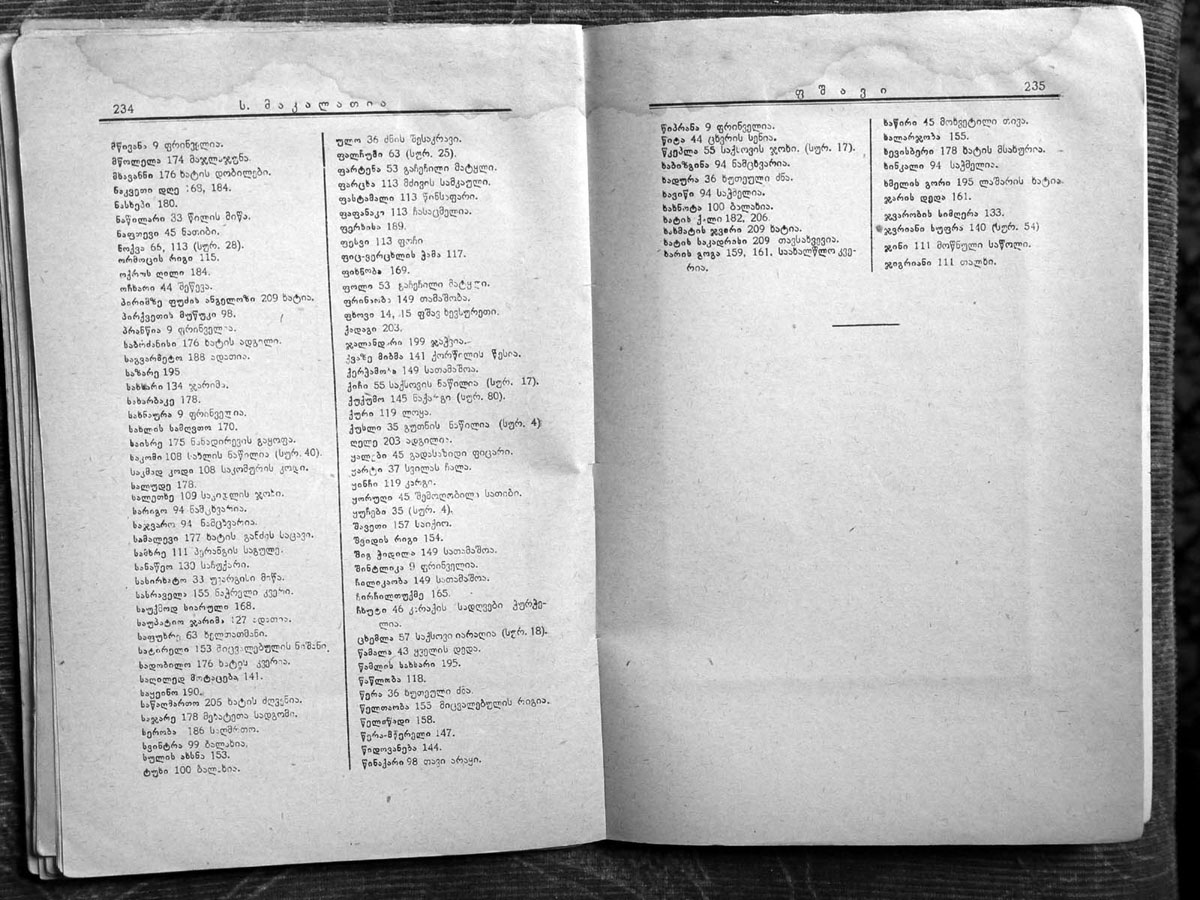 234
ს. მაკალათია
მწივანა 9 ფრინველია.
მწოლელა 174 მაჯლაჯუნა.
მხავანნი 176 ხატის დობილები.
ნაკვეთი დღე 168, 184.
ნასხეპი 180.
ნაწილარი 33 წილის მიწა.
ნაფუევი 45 ნათიბი.
ნოქვა 66, 113 (სურ. 28).
ორმოცის რიგი 115.
ოქროს ღილი 184.
ოჩხარი 44 მეწევა.
პირიმზე ფუძის ანგელოზი 209 ხატია.
პირქვეთის მუწუკი 98.
პრანწია 9 ფრინველია.
საბრძანისი 176 ხატის ადგილი.
საგვარმეტო 188 ადათია.
საზარე 195
სახსარი 134 ჯარიმა.
სახარბაკე 178.
სახნაურა 9 ფრინველია.
სახლის სამღვთო 170.
საისრე 175 ნანადირევის გაყოფა.
საკომი 108 სახლის ნაწილია (სურ. 40).
საკმად კოდი 108 საკომურის კოდი.
სალუდე 178.
სალეთხე 109 საკიდლის ჯოხი.
სარიგო 94 ნამცხვარია.
საჯვარო 94 ნამცხვარია.
სამალევი 177 ხატის განძის საცავი.
სამხრე 111 პერანგის საგულე.
სანაწეო 130 საჩუქარი.
სასირხატო 33 უვარგისი მიწა.
სასრაველა 155 ნაჭრელი კვერი.
საუქმოდ სიარული 168.
საუპატიო ჯარიმა 127 ადათია.
საფუხრე 63 ხელთათმანი.
სატირელი 153 მიცვალებულის ნიშანი.
სადობილო 176 ხატის კვერია.
საღილედ მოტაცება 141.
საყეინო 190.
საწაღმართო 205 ხატის ძღვენია.
საჯარე 178 მეხატეთა სადგომი.
სერობა 186 საღმრთო.
სვინტრა 99 ბალახია.
სულის ახსნა 153.
ტუხი 100 ბალახია.
ულო 36 ძნის შესაკრავი.
ფალჩუმი 63 (სურ. 25).
ფარტენა 53 გაჩეჩილი მატყლი.
ფარცხა 113 მძივის სამკაული.
ფასტამალი 113 წინსაფარი.
ფაფანაკი 113 ჩასაცმელია.
ფერხისა 189.
ფესვი 113 ფოჩი
ფიც-ვერცხლის ჭამა 117.
ფიხნობა 169.
ფოლი 53 გაჩეჩილი მატყლი.
ფრინაობა 149 თამაშობა.
ფხოვი 14, 15 ფშავ ხევსურეთი.
ქადაგი 203.
ქალანდარი 199 ჯაჭვია.
ქვაზე მიბმა 141 ქორწილის წესია.
ქერჰამობა 149 სათამაშოა.
ქიჩი 55 საქსოვის ნაწილია (სურ. 17).
ქუქუმო 145 ნაქარგი (სურ. 80).
ქური 119 ლოყა.
ქუსლი 35 გუთნის ნაწილია (სურ. 4)
ღელე 203 ადგილია.
ყალები 45 გადასაზიდი ფიცარი.
ყარტი 37 სვილას ჩალა.
ყინჩი 119 კარგი.
ყორული 45 შემოღობილა სათიბი.
ყურები 35 (სურ. 4).
შავეთი 157 საიქიო.
შვიდის რიგი 154.
შიგ ჭიდილა 149 სათამაშოა.
შინტლიკა 9 ფრინველია.
ჩილიკაობა 149 სათამაშოა.
ჩირჩილთუქმე 165.
ჩხუტი 46 კარაქის სადღვები ჭურჭე-
ლია.
ცხემლა 57 საქსოვი იარაღია (სურ. 18).
წამალა 43 ყველის დედა.
წამლის სახსარი 195.
წაწლობა 118.
წერა 36 ხუთეული ძნა.
წელთაობა 155 მიცვალებულის რიგია.
წელიწადი 158.
წერა-მწერელი 147.
წიდოვანება 144.
წინაქარი 98 თავი არაყი.
ფშავი
235
წიპრანა 9 ფრინველია.
წიტა 44 ცხვრის სენია.
წკეპლა 55 საქსოვის ჯოხი. (სურ. 17).
ხაბიზგინა 94 ნამცხვარია.
ხადურა 36 ხუთეული ძნა.
ხავიწი 94 საჭმელია.
ხახნოტა 100 ბალახია.
ხატის ქალი 182, 206.
ხახმატის ჯვირი 209 ხატია.
ხატის საკადრისი 209 თავსახვევია.
ხარის გოგა 159, 161. საახალწლო კვე-
რია.
ხაწირი 45 მოხვეტილი თივა.
ხალარჯობა 155.
ხევისბერი 178 ხატის მსახურია.
ხინკალი 94 საჭმელია.
ხმელის გორი 195 ლაშარის ხატია
ჯარის დედა 161.
ჯვარობის სიმღერა 133.
ჯვრიანი სუფრა 140 (სურ. 54)
ჯინი 111 მოწნული საწოლი.
ჯიგრიანი 111 თალხი.